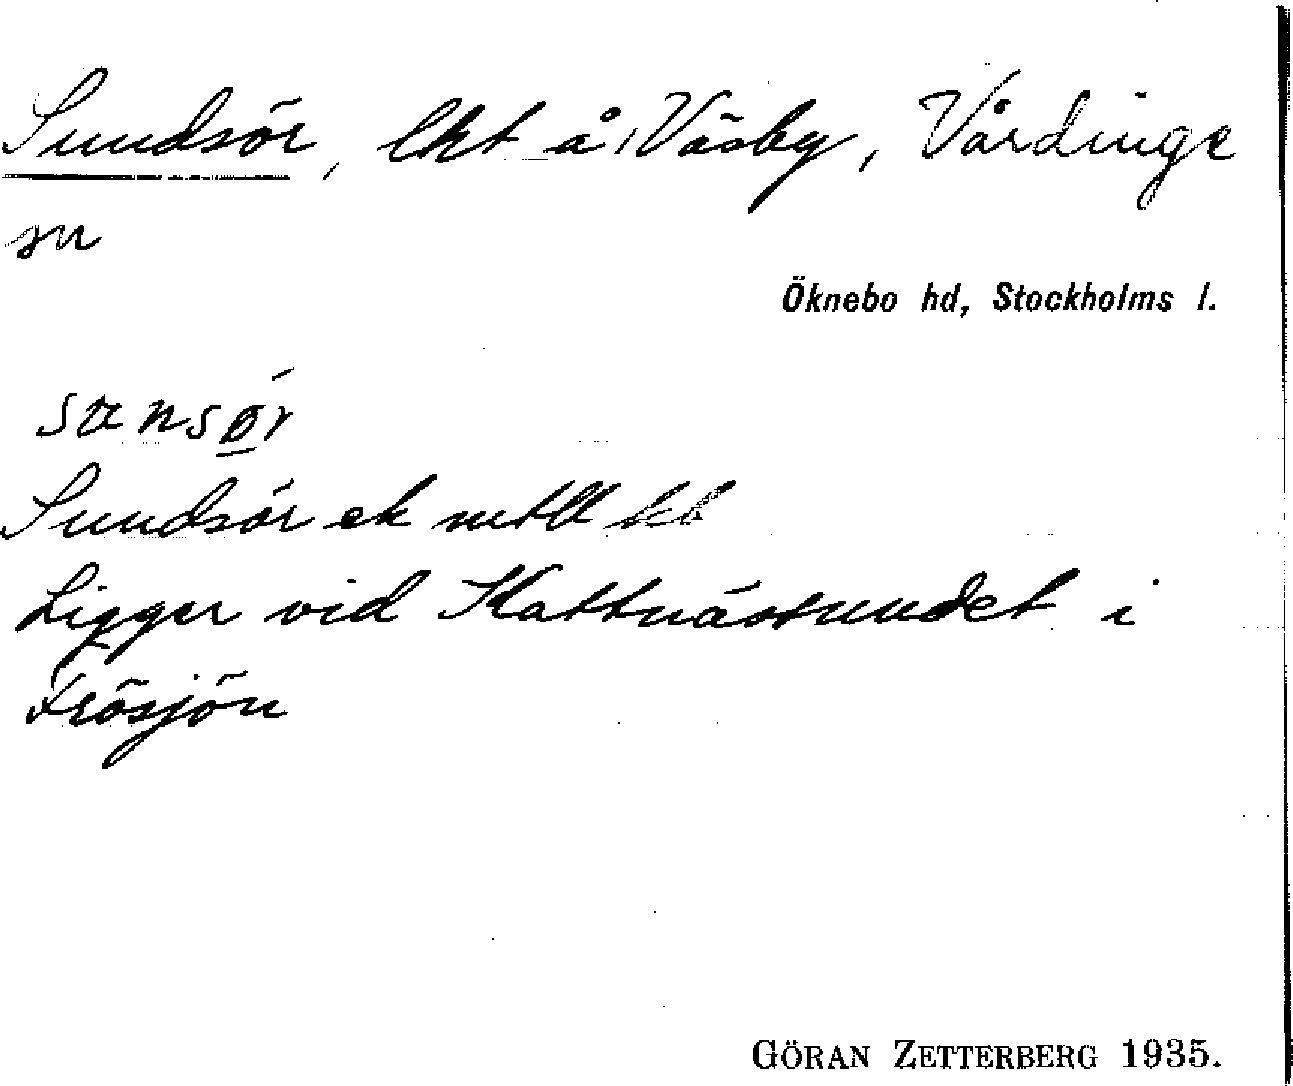 Sundsör, lht å Väsby, Vårdinge
sn
Öknebo hd, Stockholms l.
Sundsör ek
Ligger vid Kattnässundet i
Frösjön
GÖRAN ZETTERBERG 1935.